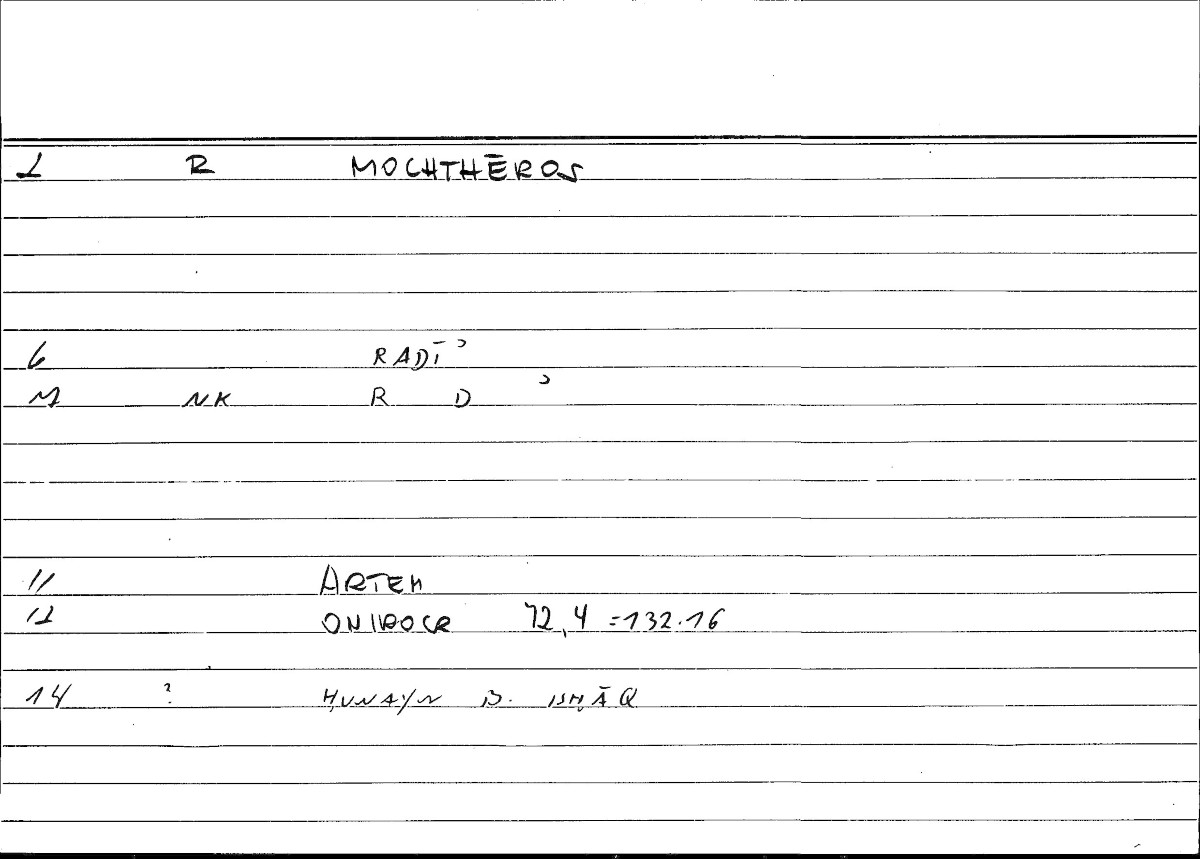 1 R MOCHTHĒROS
6 RADĪʾ
M NK R D ʾ
11 ARTEM
12 ONIROCR 72,4 =132.16
14 ? ḤUNAYN B. ISḤĀQ